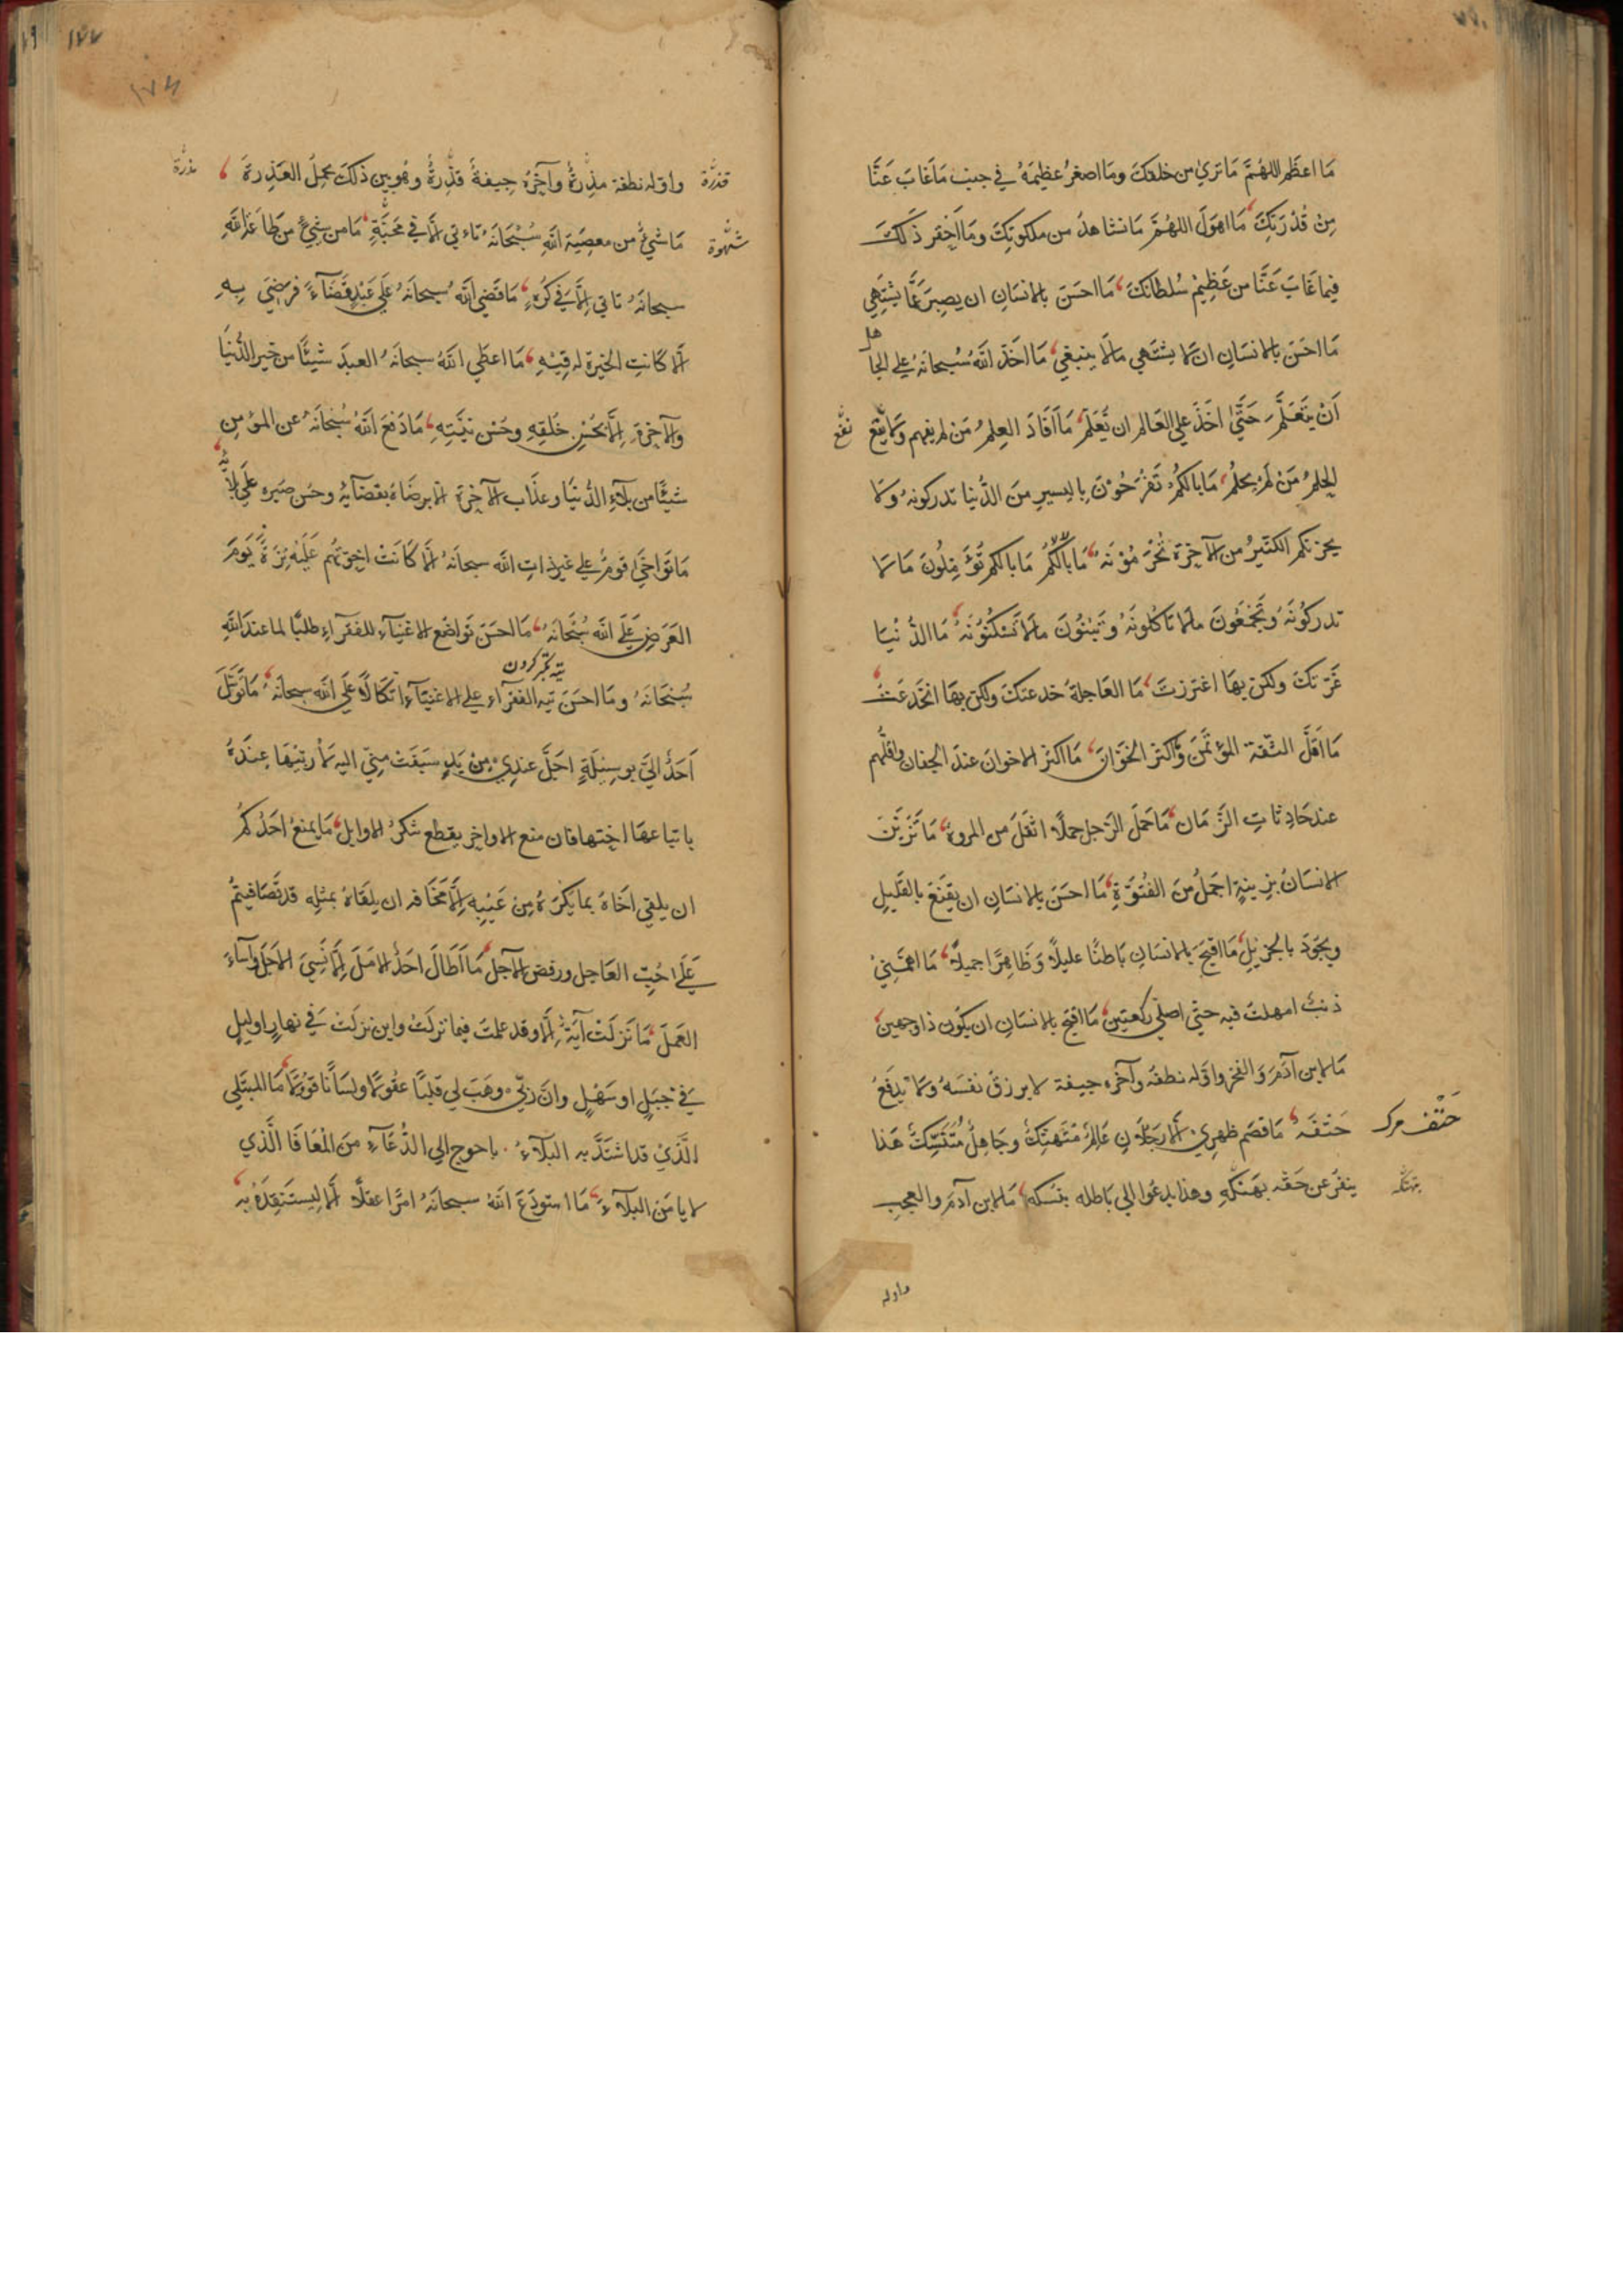 مَا اعظَم اللهُمَّ مَا نَرَىٰ من خلقكَ ومَا اصغرُ عظيمَهُ في جنب مَا غَابَ عَنَّا
مِنْ قُدْرَتِكَ مَا اهوَلَ اللهُمَّ مَا نشاهدُ من ملكوتِكَ ومَا احْقر ذَلكَ
فيما غَابَ عَنَّا من عَظِيْم سُلطانكَ مَا احسَنَ بالانسَانِ ان يصبِرَ عَمَّا يشتَهِي
مَا احسَنَ بالانسَانِ ان لَا يشتَهي مَالَا ينبغي مَا اخَذَ اللهُ سُبحانَهُ علي الجاهل
اَنْ يتَعَلَّمَ حَتَّىٰ اخَذَ علي العَالم ان يُّعَلِّمَ مَا اَفَادَ العِلمُ مَنْ لم يفهم ولَا نفَع
نفع
الحِلمُ مَنْ لَمْ يحلُم مَا بالكُمْ تَفْرَحُوْنَ بِاليسيرِ مِنَ الدُّنيا تدركونهُ ولَا
يحزنكم الكثيرُ من الآخِرَةِ تُحْرَمُوْنَهُ مَا بَالُكُمْ مَا بالكم تُؤَمِّلُونَ مَا لَا
تدركُونَهُ وتَجْمَعُونَ مالَا تَاكُلونَهُ وَتَبْنُونَ مالَا تَسْكُنُوْنَهُ مَا الدُّنْيَا
غَرّتكَ ولكن بهَا اغترَرتَ مَا العَاجلةُ خدعتكَ ولكن بهَا انخَدعَتَ
مَا اَقلَّ الثّقةَ المؤتَمَنَ وَّاكثرَ الخَوَّانَ مَا اكثرَ الاخوانَ عندَ الجفانِ واقلَّهم
عندَ حَادِثاتِ الزَّمَانِ مَا حَمَلَ الرَّجل حملًا اثقَلَ من المروةِ مَا تزيَّنَ
الانسَانُ بزينةٍ اجمَلُ مِنَ الفُتُوَّةِ مَا احسَنَ بالانسَانِ ان يقنَعَ بالقليلِ
ويجُودَ بالجزيلِ مَا اقبَحَ بالانسَانِ بَاطنًا عليلًا وَظَاهِرًا جميلًا مَا اهمَّنِيْ
ذنبٌ امهلتُ فيه حتّي اصلّي ركعتين مَا اقبَحَ بالانسَانِ ان يكُونَ ذا وجهين
مَا لابن آدَمَ وَالفخر واوّله نطفَة وآخره جيفة لا يرزقُ نفسَهُ ولَا يدفَعُ
حَتْفَهُ مَا قصَم ظهرِيْ الَّا رجُلَانِ عَالِمٌ مُّتَهتِّكٌ وجَاهِلٌ مُّتَنَسِّكٌ هَذا
حَتْف مرك
ينفّرُ عن حَقّه بهَتكِّهِ وهذا يدعُوا الي بَاطله بنُسكه مَا لابن آدمَ والعجب
بتهتّكه
واوله
١٧٧
١٧٤
واوّله نطفة مذِرَةٌ وآخرُهُ جيفةٌ قذِرةٌ وهُو بين ذلكَ يحمِلُ العَذِرَةَ
قذرة
مذرة
مَا شَيْءٌ من معصِيَةِ اللهِ سُبْحَانَهُ تاءتي الَّا في مَحَبَّةٍ مَا من شَيْءٍ من طَاعَةِ اللهِ
شَهْوة
سبحانَهُ تاتي اِلَّا في كُرْهٍ مَا قَضي اللهُ سُبحَانَهُ عَلي عَبْدٍ قَضَاءً فرَضِيَ بِهِ
الَّا كَانتِ الخيَرة له فِيْهِ مَا اعطَي اللهُ سبحانَهُ العبدَ شَيْئًا من خير الدُّنيَا
والآخِرةِ اِلَّا بحُسْنِ خُلقِهِ وحُسْن نيَّتِهِ مَا دَفَعَ اللهُ سُبْحَانَهُ عن المؤمن
شَيْئًا من بلَاءِ الدُّنيَا وعذَاب الآخِرَة الّا برضَاهُ بقضَائِهِ وحُسْن صبَرهِ عَلَي بلائِه
مَا تَواخَي قومٌ علي غير ذاتِ الله سبحانَهُ الَّا كَانتْ اخوّتُهُم عَليْهِم تِرَةً يَومَ
العَرَضِ عَلَي اللهِ سُبْحَانَهُ مَا احسَنَ تَواضُع الاغنيَاءِ للفقرَاءِ طلبًا لما عندَ اللهِ
تيه تكبر كردن
سُبْحَانَهُ ومَا احسَنَ تيه الفقرَاءِ علي الاغنيَاءِ اتّكَالًا عَلَي الله سبحانَهُ مَا تَوَسَّلَ
اَحَدٌ اِلَيَّ بِوسِيْلَةٍ اجَلَّ عندِيْ مِنْ يَدٍ سَبقَتْ مِنّي اليه لِاُربّيَهَا عِندَهُ
باتباعهَا اختهَا فان منع الاواخرِ يقطع شكرَ الاوايل مَا يمنَعُ احَدُكمْ
ان يلقي اخَاهُ بمَا يكرَهُ مِنْ عَيْبِهِ اِلَّا مَخَافة ان يلقَاهُ بمثلِه قد تَصَافيتُمْ
عَلَي حُبِّ العَاجِل ورفض الآجِل مَا اَطَالَ احَدٌ الامَلَ اِلَّا نَسِيَ الاجَلَ وَاَسَاءَ
العَمَلَ مَا نَزَلَتْ آيَةٌ اِلَّا وقد علمتُ فيما نزلَتْ واين نزلَتْ في نهارٍ او ليلٍ
في جَبَلٍ او سَهْلٍ وانَّ ربّي وهَبَ لي قلبًا عقُولًا ولسَانًا قَؤُولًا مَا المبتَلي
الَّذِيْ قد اشتَدَّ به البَلَاءُ باحوج الي الدُّعَاءِ مِنَ الْمُعَافَا الَّذي
لا يامَنُ البلَاءَ مَا استَودَعَ اللهُ سبحانَهُ امرَأ عقلًا الَّا لِيستَنقِذَهُ به